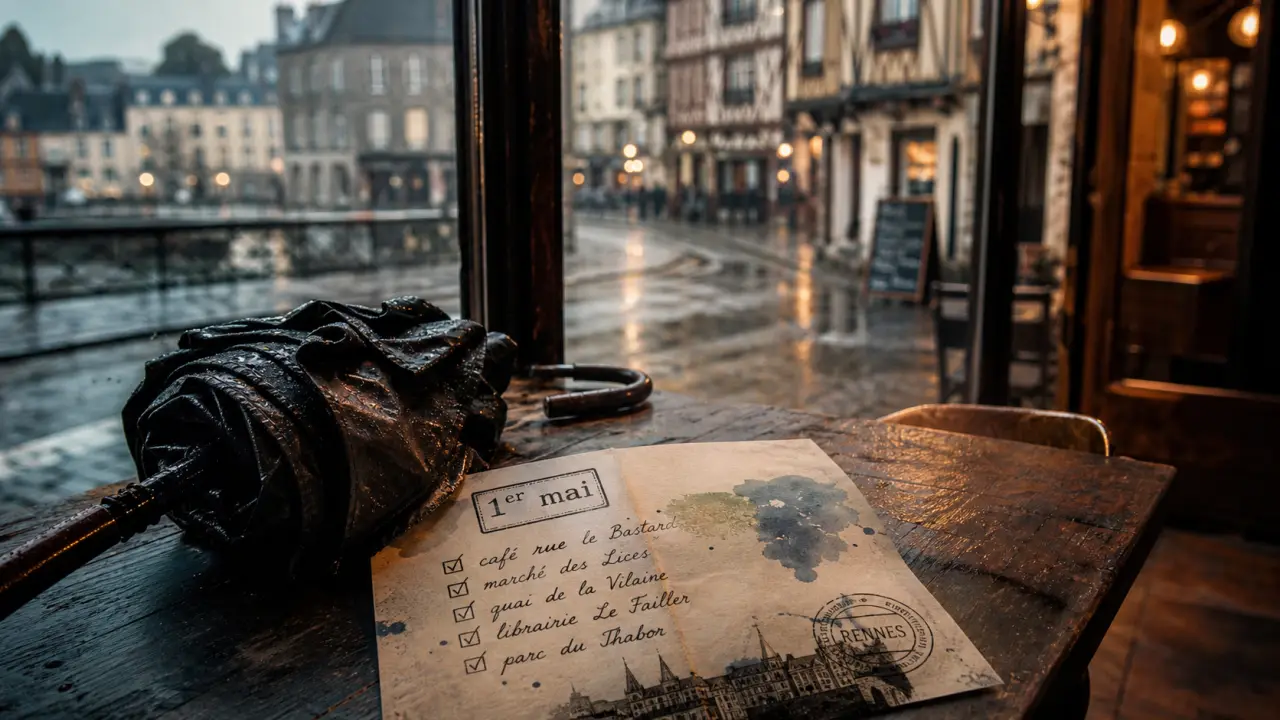 1er mai
café rue le Bastard
marché des Lices
quai de la Vilaine
librairie Le Failler
parc du Thabor
RENNES